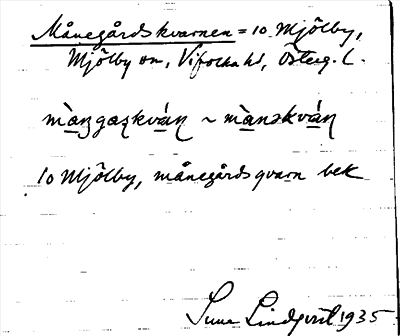 Månegårdskvarnen = 10 Mjölby,
Mjölby sn, Vifolka hd, Österg. l.
màngaskván ~ mànskván
10 Mjölby, månegårds qvarn bek
Sune Lindqvist 1935